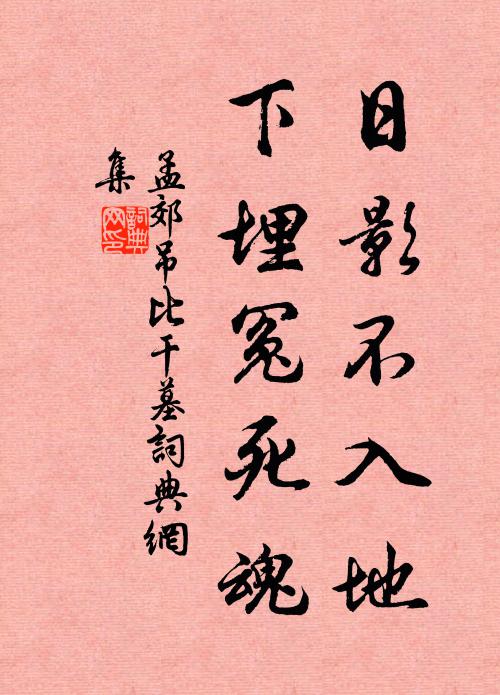 日影不入地
下埋冤死魂
孟郊吊比干墓詞典網
集
詞典
网印